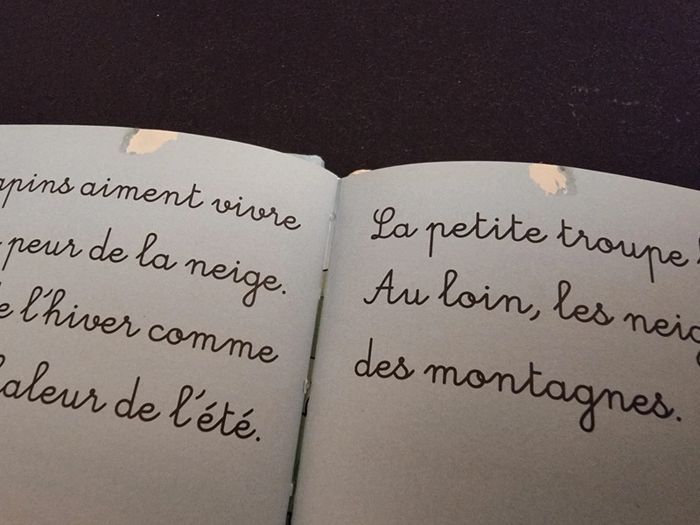 aiment vivre
peur de la neige.
l'hiver comme
de l'été.
La petite troupe
Au loin, les
des montagnes.